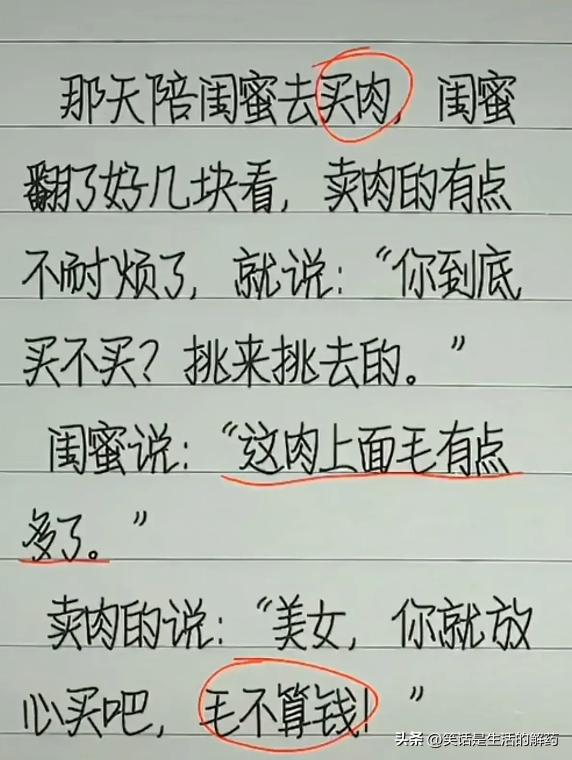 那天陪闺蜜去买肉，闺蜜
翻了好几块看，卖肉的有点
不耐烦了，就说：“你到底
买不买？挑来挑去的。”
闺蜜说：“这肉上面毛有点
多了。”
卖肉的说：“美女，你就放
心买吧，毛不算钱！”
头条 @笑话是生活的解药